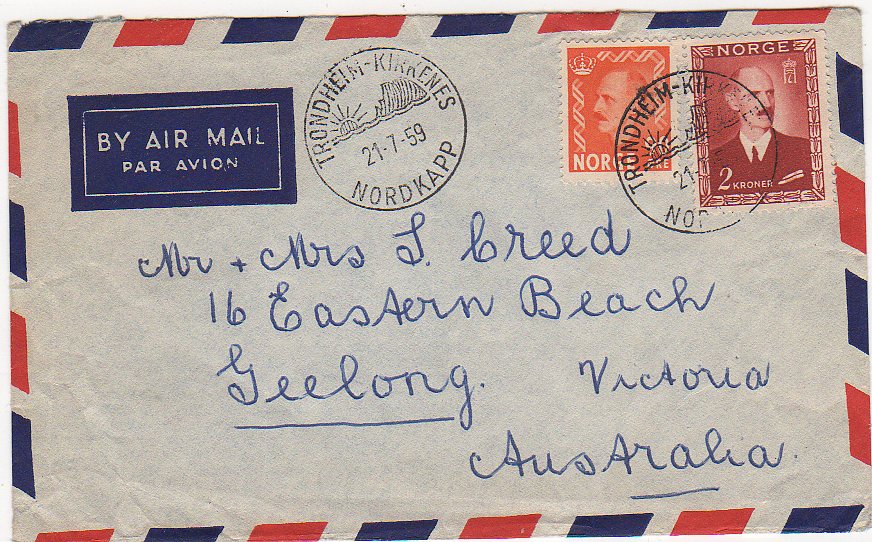 BY AIR MAIL
PAR AVION
TRONDHEIM-KIRKENES
21-7-59
NORDKAPP
NORGE
NORGE
2 KRONER
TRONDHEIM-KIRKENES
Mr + Mrs S. Creed
16 Eastern Beach
Geelong. Victoria
Australia.